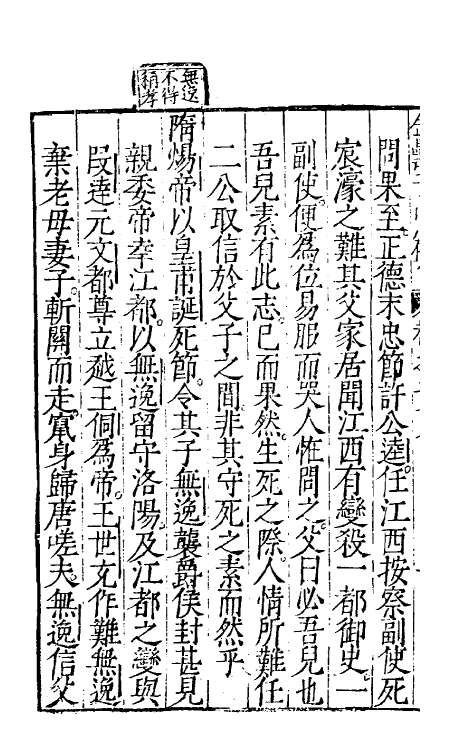 無逸
不得
稱孝
問果至。正德末忠節許公逵。任江西按察副使死
宸濠之難其父家居聞江西有變殺一都御史。一
副使。便為位易服而哭人怪問之。父曰必吾兒也
吾兒素有此志。已而果然。生死之際。人情所難任
二公取信於父子之間非其守死之素而然乎
隋煬帝以皇甫誕死節。令其子無逸襲爵侯封甚見
親委帝幸江都。以無逸留守洛陽。及江都之變與
段達元文都尊立越王侗為帝。王世充作難無逸
棄老母妻子。斬關而走。竄身歸唐嗟夫。無逸信父